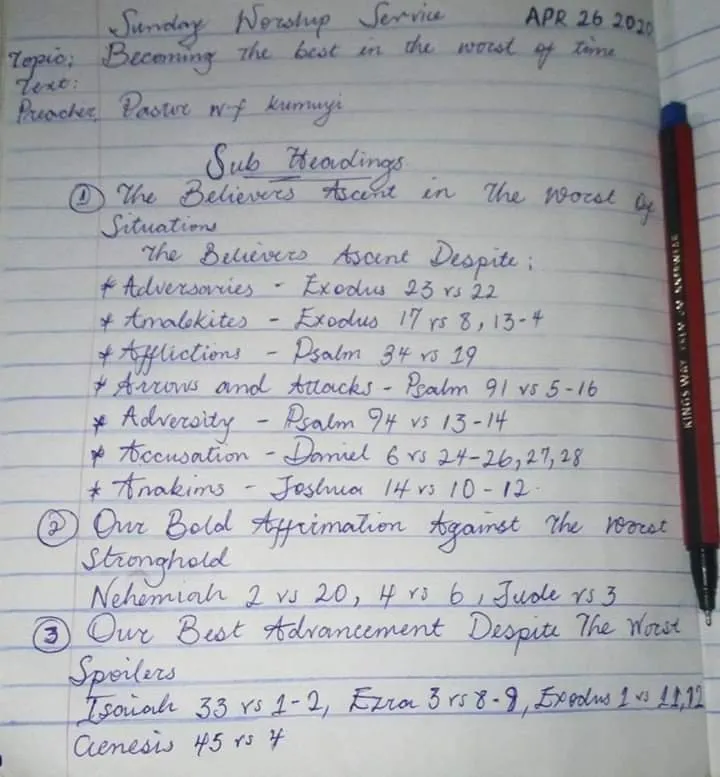 Sunday Worship Service APR 26 2020
Topic: Becoming The best in the worst of time
Text:
Preacher, Pastor W.f Kumuyi
Sub Headings
① The Believers Ascent in The worst of
Situations
The Believers Ascent Despite:
* Adversaries - Exodus 23 vs 22
* Amalekites - Exodus 17 vs 8, 13-4
* Afflictions - Psalm 34 vs 19
* Arrows and Attacks - Psalm 91 vs 5-16
* Adversity - Psalm 94 vs 13-14
* Accusation - Daniel 6 vs 24-26, 27, 28
* Anakims - Joshua 14 vs 10-12.
② Our Bold Affrimation Against The worst
Stronghold
Nehemiah 2 vs 20, 4 vs 6, Jude vs 3
③ Our Best Advancement Despite The Worst
Spoilers
Isaiah 33 vs 1-2, Ezra 3 vs 8-9, Exodus 1 vs 11,12
Genesis 45 vs 4
KINGS WAY